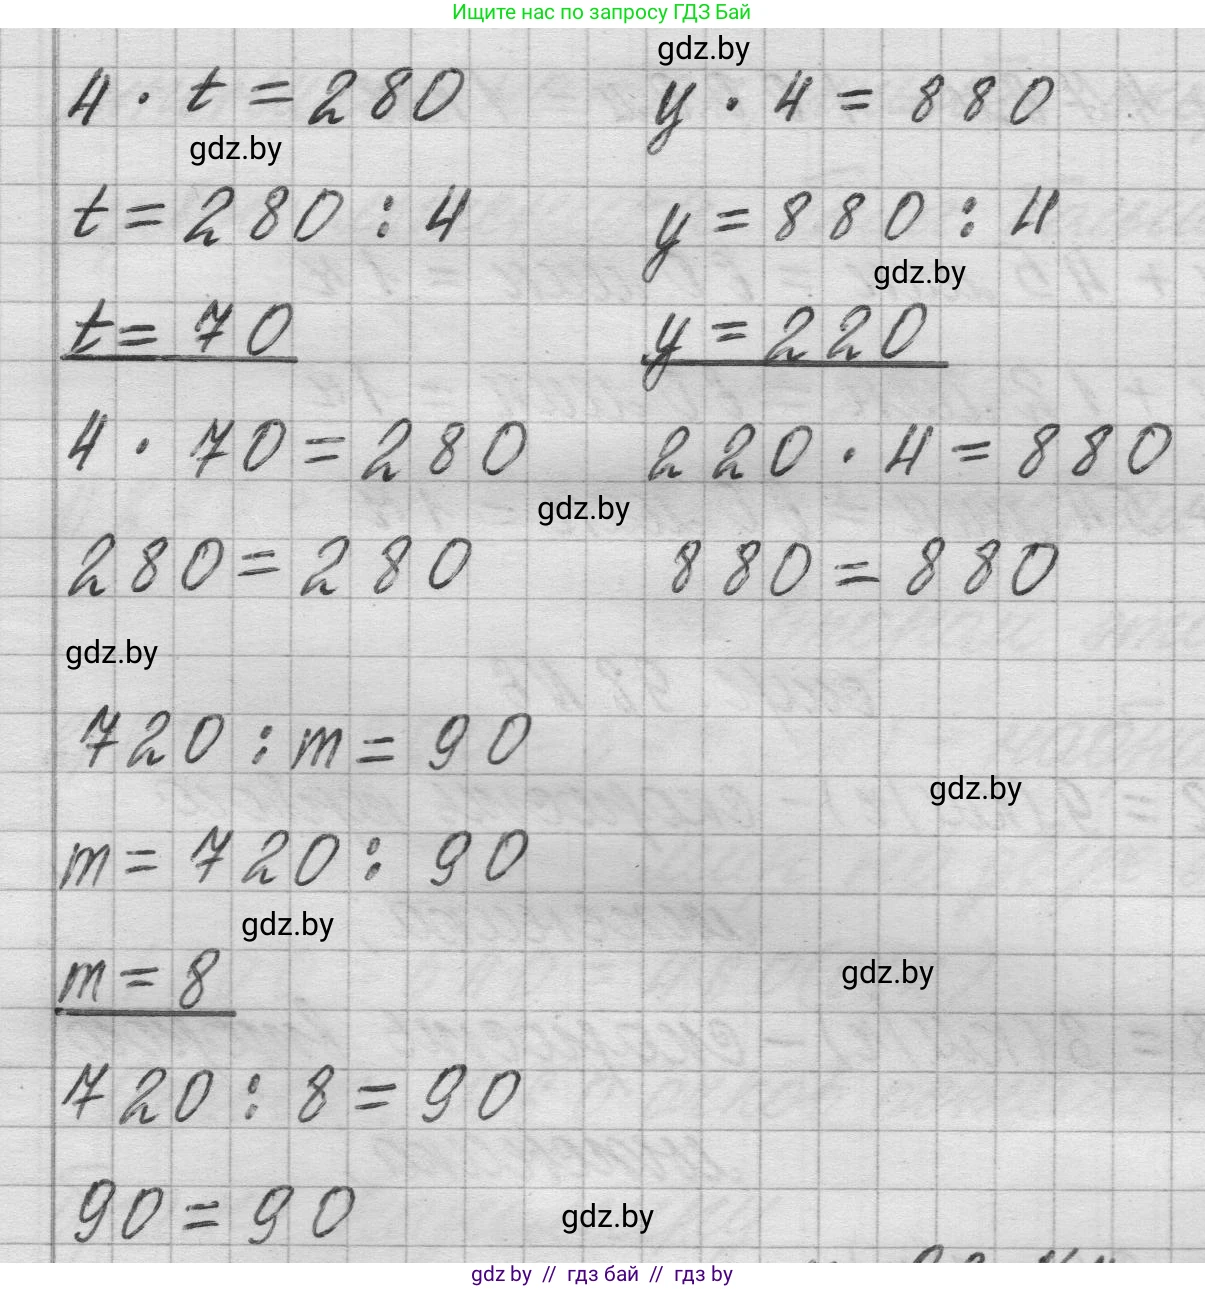 Ищите нас по запросу ГДЗ Бай
gdz.by
4 · t = 280
y · 4 = 880
gdz.by
t = 280 : 4
y = 880 : 4
gdz.by
t = 70
y = 220
4 · 70 = 280
220 · 4 = 880
gdz.by
280 = 280
880 = 880
gdz.by
720 : m = 90
gdz.by
m = 720 : 90
gdz.by
m = 8
gdz.by
720 : 8 = 90
90 = 90
gdz.by
gdz by // гдз бай // гдз by